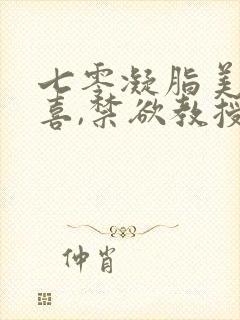 七零凝脂美
喜,禁欲教授
仲肖